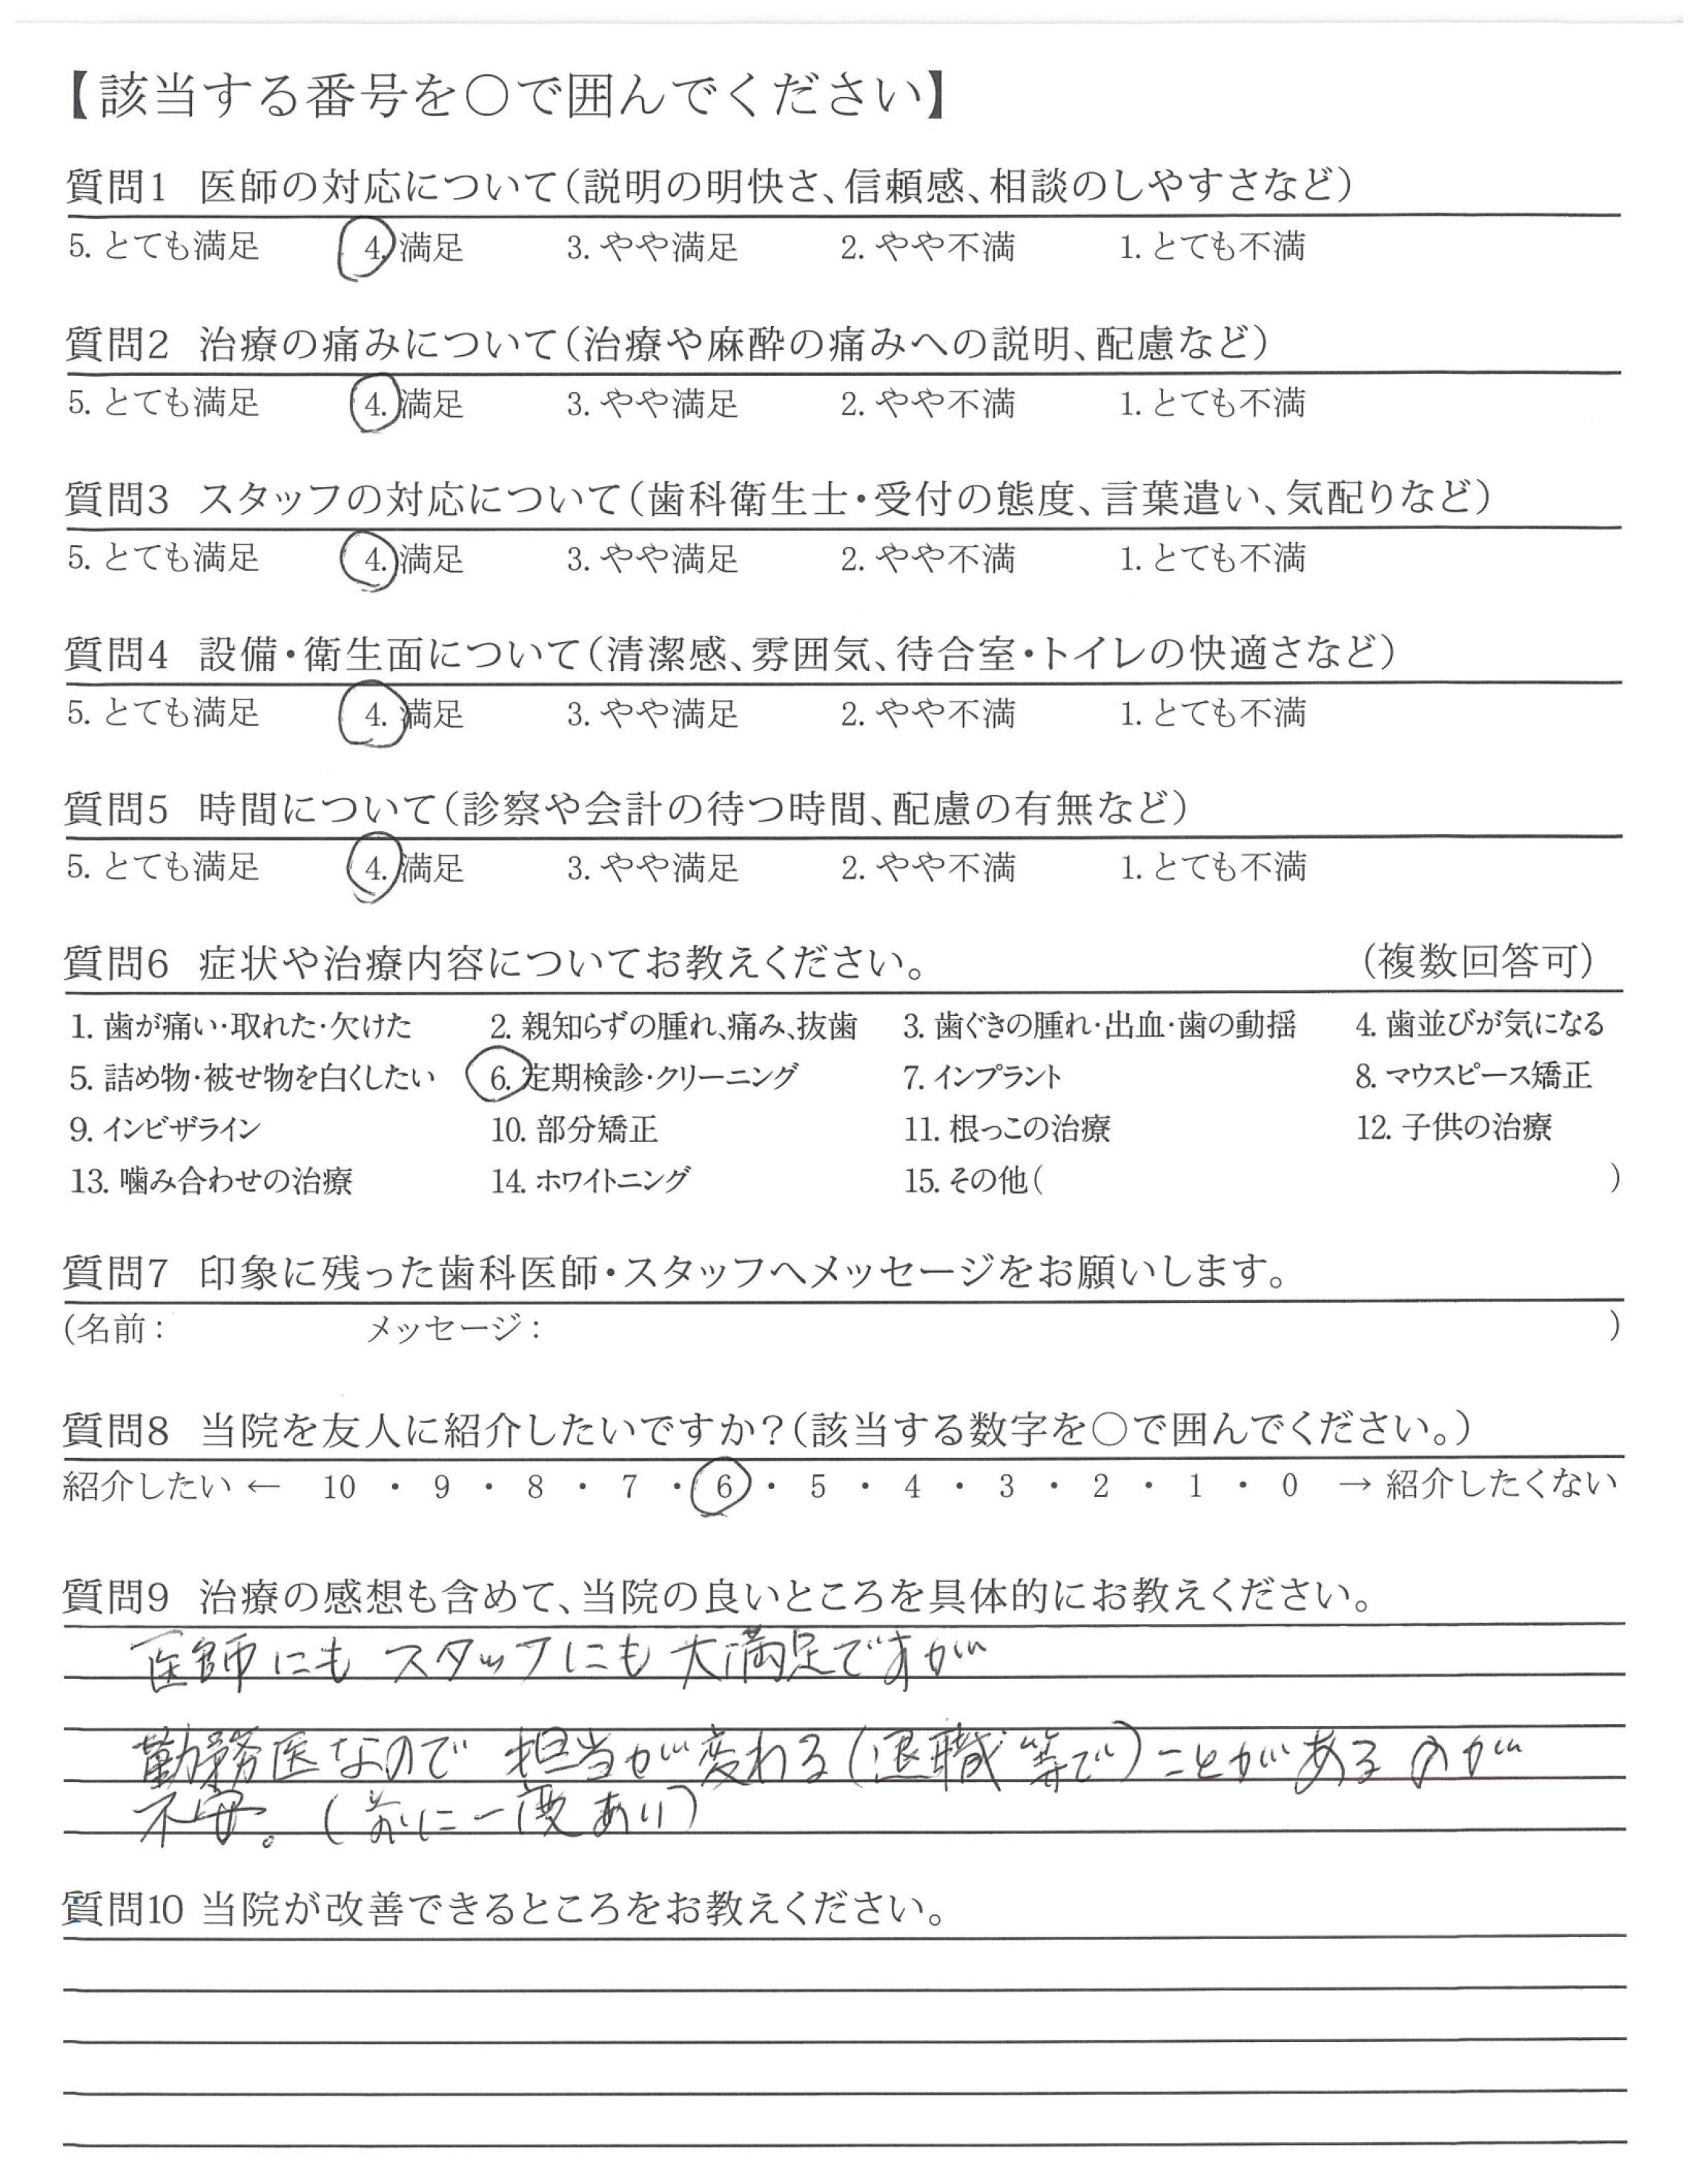 【該当する番号を○で囲んでください】
質問1 医師の対応について（説明の明快さ、信頼感、相談のしやすさなど）
5. とても満足 4. 満足 3. やや満足 2. やや不満 1. とても不満
質問2 治療の痛みについて（治療や麻酔の痛みへの説明、配慮など）
5. とても満足 4. 満足 3. やや満足 2. やや不満 1. とても不満
質問3 スタッフの対応について（歯科衛生士・受付の態度、言葉遣い、気配りなど）
5. とても満足 4. 満足 3. やや満足 2. やや不満 1. とても不満
質問4 設備・衛生面について（清潔感、雰囲気、待合室・トイレの快適さなど）
5. とても満足 4. 満足 3. やや満足 2. やや不満 1. とても不満
質問5 時間について（診察や会計の待つ時間、配慮の有無など）
5. とても満足 4. 満足 3. やや満足 2. やや不満 1. とても不満
質問6 症状や治療内容についてお教えください。 （複数回答可）
1. 歯が痛い・取れた・欠けた 2. 親知らずの腫れ、痛み、抜歯 3. 歯ぐきの腫れ・出血・歯の動揺 4. 歯並びが気になる
5. 詰め物・被せ物を白くしたい 6. 定期検診・クリーニング 7. インプラント 8. マウスピース矯正
9. インビザライン 10. 部分矯正 11. 根っこの治療 12. 子供の治療
13. 噛み合わせの治療 14. ホワイトニング 15. その他（ ）
質問7 印象に残った歯科医師・スタッフへメッセージをお願いします。
（名前： メッセージ： ）
質問8 当院を友人に紹介したいですか？（該当する数字を○で囲んでください。）
紹介したい ← 10 ・ 9 ・ 8 ・ 7 ・ 6 ・ 5 ・ 4 ・ 3 ・ 2 ・ 1 ・ 0 → 紹介したくない
質問9 治療の感想も含めて、当院の良いところを具体的にお教えください。
医師にも スタッフにも 大満足ですが
勤務医なので 担当が変わる（退職等で）ことがあるのが
不安。（前に一度あり）
質問10 当院が改善できるところをお教えください。